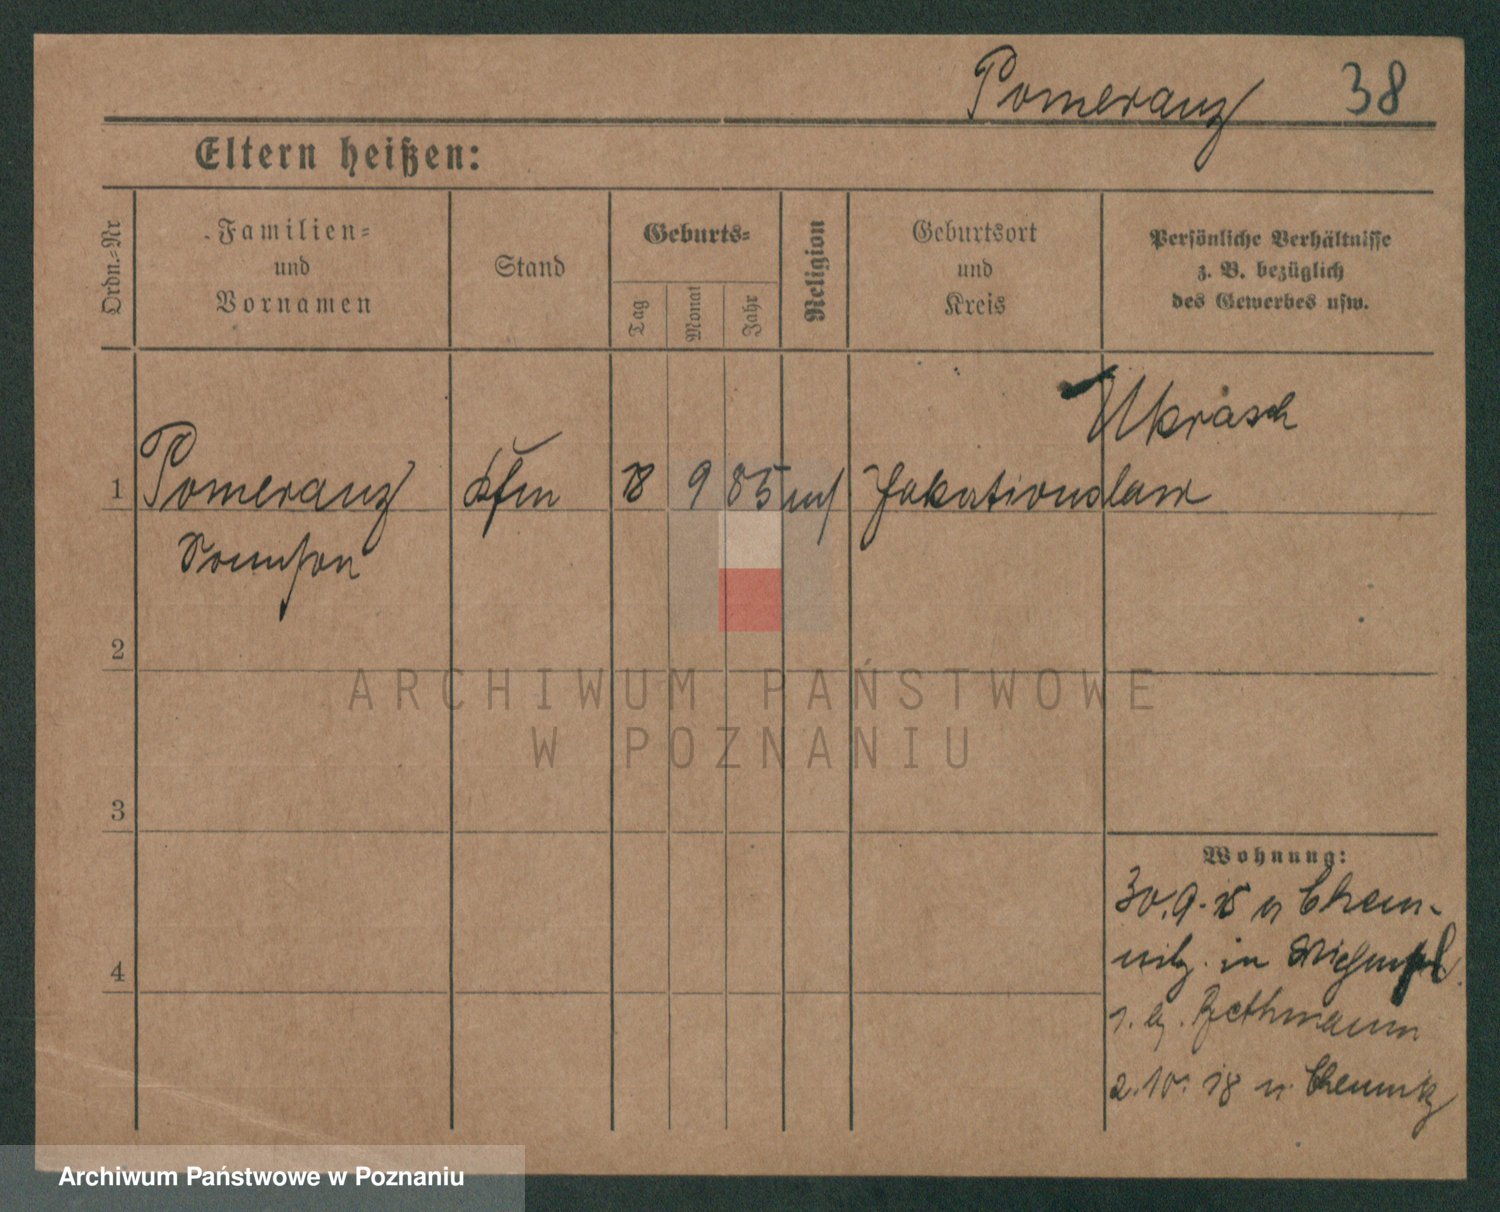 Pomeranz 38
Eltern heißen:
Ordn.-Nr
Familien-
und
Vornamen
Stand
Geburts-
Tag
Monat
Jahr
Religion
Geburtsort
und
Kreis
Persönliche Verhältnisse
z. B. bezüglich
des Gewerbes usw.
1
Pomeranz Kfm 18 9 85
2
3
4
Wohnung:
30.9. n Chem-
nitz. in
Bethmann
2.10. 18 n. Chemnitz
ARCHIWUM PAŃSTWOWE
W POZNANIU
Archiwum Państwowe w Poznaniu